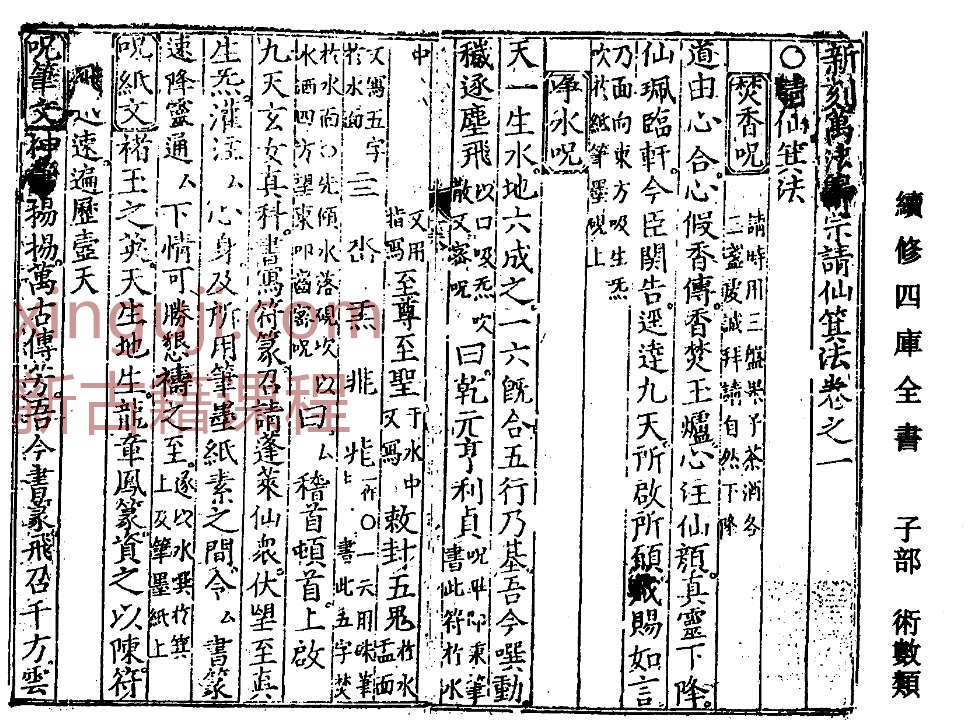 續修四庫全書 子部 術數類
新刻萬法歸宗請仙箕法卷之一
○請仙箕法
焚香呪 請時用三盤果子茶酒各三盞虔誠拜請自然下降
道由心合。心假香傳。香焚玉爐。心注仙顏。真靈下降。
仙珮臨軒。今臣關告。逕達九天。所啟所願。咸賜如言
乃面向東方吸生炁吹於紙筆墨硯上
淨水呪
天一生水。地六成之。一六既合。五行乃基。吾今噀動
穢逐塵飛 以口吸炁吹散又密呪 曰乾元亨利貞 呪畢即東筆書此符於水
中 又用指寫 至尊至聖 于水中又寫 敕封五鬼 於水盂面
又寫五字於水面 一作○一云用硃筆書此五字焚
於水面○先傾水落硯次以水洒四方望東叩齒密呪 曰。稽首頓首。上啟
九天玄女真科。書寫符篆。召請蓬萊仙衆。伏望至真
生炁。灌注厶心身及所用筆墨紙素之間。令厶書篆
速降靈通。厶下情可勝懇禱之至。遂以水噀於箕上及筆墨紙上
呪紙文 楮玉之英。天生地生。龍章鳳篆。資之以陳。符
飛迅速。遍歷盡天
呪筆文 神筆揚揚。萬古傳芳。吾今書篆。飛召千方。雲
xinguji.com
新古籍课程